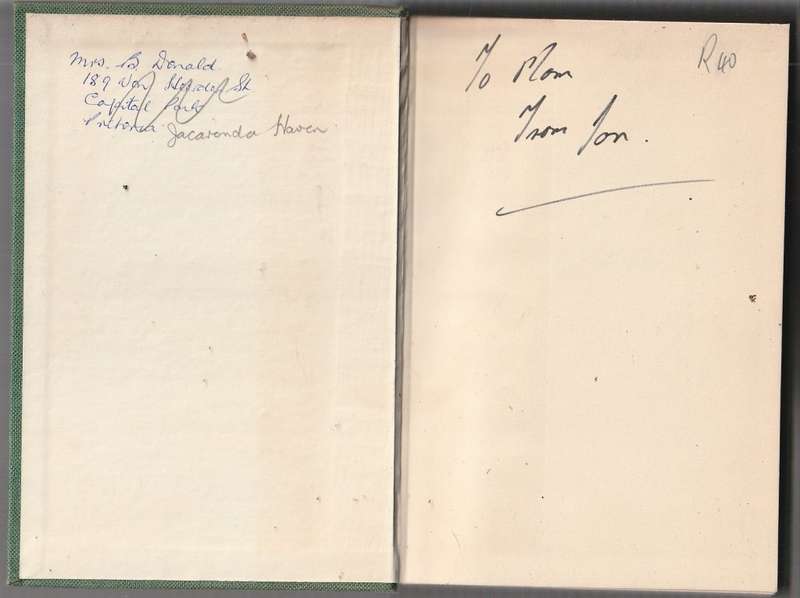 Mrs. B Donald
189 Von St
Capital Park
Pretoria Jacarenda Haven
To Mom
From Ion.
R40